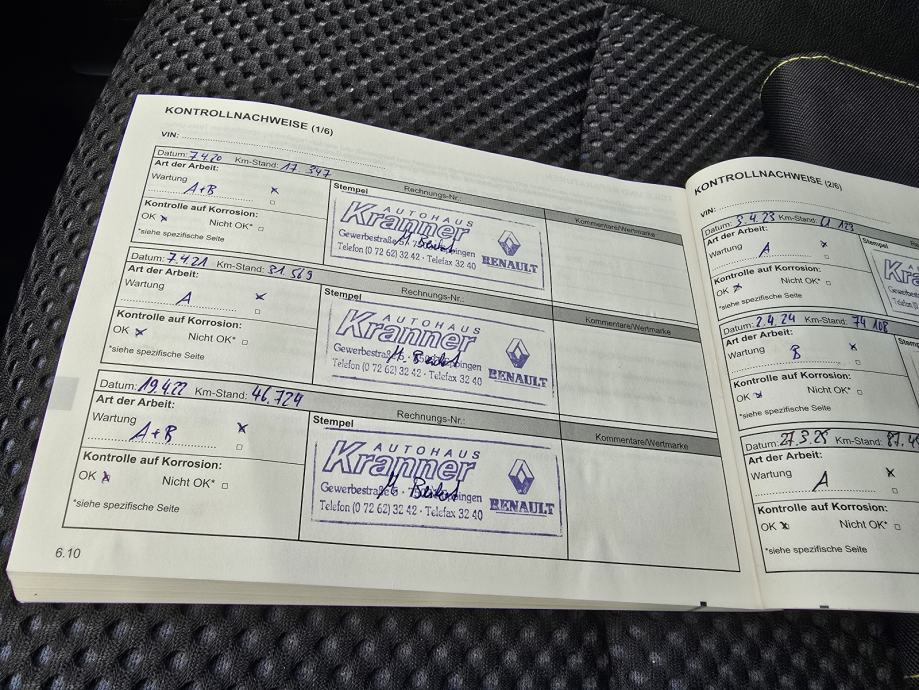 KONTROLLNACHWEISE (1/6)
VIN:
Datum: 7.4.20 Km-Stand: 17 347
Art der Arbeit:
Wartung x
A+B
Kontrolle auf Korrosion:
OK x Nicht OK*
*siehe spezifische Seite
Stempel Rechnungs-Nr.:
AUTOHAUS
Kranner
Gewerbestraße
Telefon (0 72 62) 32 42 · Telefax 32 40
RENAULT
Kommentare/Wertmarke
Datum: 7.4.21 Km-Stand: 31 569
Art der Arbeit:
Wartung x
A
Kontrolle auf Korrosion:
OK x Nicht OK*
*siehe spezifische Seite
Stempel Rechnungs-Nr.:
AUTOHAUS
Kranner
Gewerbestraße
Telefon (0 72 62) 32 42 · Telefax 32 40
RENAULT
Kommentare/Wertmarke
Datum: 19.4.22 Km-Stand: 46.724
Art der Arbeit:
Wartung x
A+B
Kontrolle auf Korrosion:
OK x Nicht OK*
*siehe spezifische Seite
Stempel Rechnungs-Nr.:
AUTOHAUS
Kranner
Gewerbestraße
Telefon (0 72 62) 32 42 · Telefax 32 40
RENAULT
Kommentare/Wertmarke
6.10
KONTROLLNACHWEISE (2/6)
VIN:
Datum: 3.4.23 Km-Stand:
Art der Arbeit:
Wartung x
A
Kontrolle auf Korrosion:
OK x Nicht OK*
*siehe spezifische Seite
Stempel
Datum: 2.4.24 Km-Stand: 74 108
Art der Arbeit:
Wartung x
B
Kontrolle auf Korrosion:
OK x Nicht OK*
*siehe spezifische Seite
Datum: 27.3.25 Km-Stand:
Art der Arbeit:
Wartung x
A
Kontrolle auf Korrosion:
OK x Nicht OK*
*siehe spezifische Seite